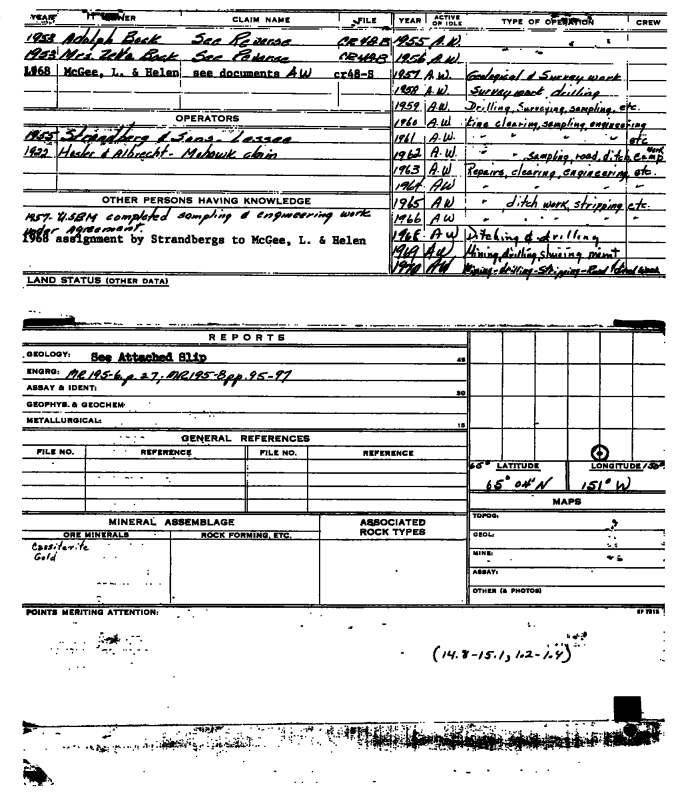 YEAR OWNER CLAIM NAME FILE YEAR ACTIVE OR IDLE TYPE OF OPERATION CREW
1953 Adolph Bock See Reverse CR48B 1955 A.W.
1953 Mrs. Zella Bock See Reverse CR48B 1956 A.W.
1968 McGee, L. & Helen see documents AW cr48-S 1957 A.W. Geological & Survey work
1958 A.W. Survey work, drilling
1959 A.W. Drilling, Surveying, sampling, etc.
OPERATORS 1960 A.W. Line clearing, sampling, engineering
1955 Strandberg & Sons - Lessee 1961 A.W. " " " etc
1922 Hosler & Albrecht - Mohawk claim 1962 A.W. " " sampling, road, ditch, camp work
1963 A.W. Repairs, clearing, engineering, etc.
1964 AW " " "
OTHER PERSONS HAVING KNOWLEDGE 1965 AW " ditch work, stripping etc.
1957 - U.S.B.M completed sampling & engineering work 1966 AW " " "
under agreement.
1968 assignment by Strandbergs to McGee, L. & Helen 1968 AW Ditching & drilling
1969 AW Mining, drilling, sluicing
1970 AW Mining - drilling - Stripping - Road work
LAND STATUS (OTHER DATA)
REPORTS
GEOLOGY: See Attached Slip 45
ENGRG: MR 195-6, p. 27; MR195-8 pp. 95-97
ASSAY & IDENT: 30
GEOPHYS. & GEOCHEM.
METALLURGICAL: 15
GENERAL REFERENCES
FILE NO. REFERENCE FILE NO. REFERENCE
65° LATITUDE LONGITUDE 150°
65° 04' N 151° W
MAPS
MINERAL ASSEMBLAGE ASSOCIATED ROCK TYPES TOPOG:
ORE MINERALS ROCK FORMING, ETC. GEOL:
Cassiterite
Gold
MINE:
ASSAY:
OTHER (& PHOTOS)
POINTS MERITING ATTENTION:
(14.8-15.1, 1.2-1.4)